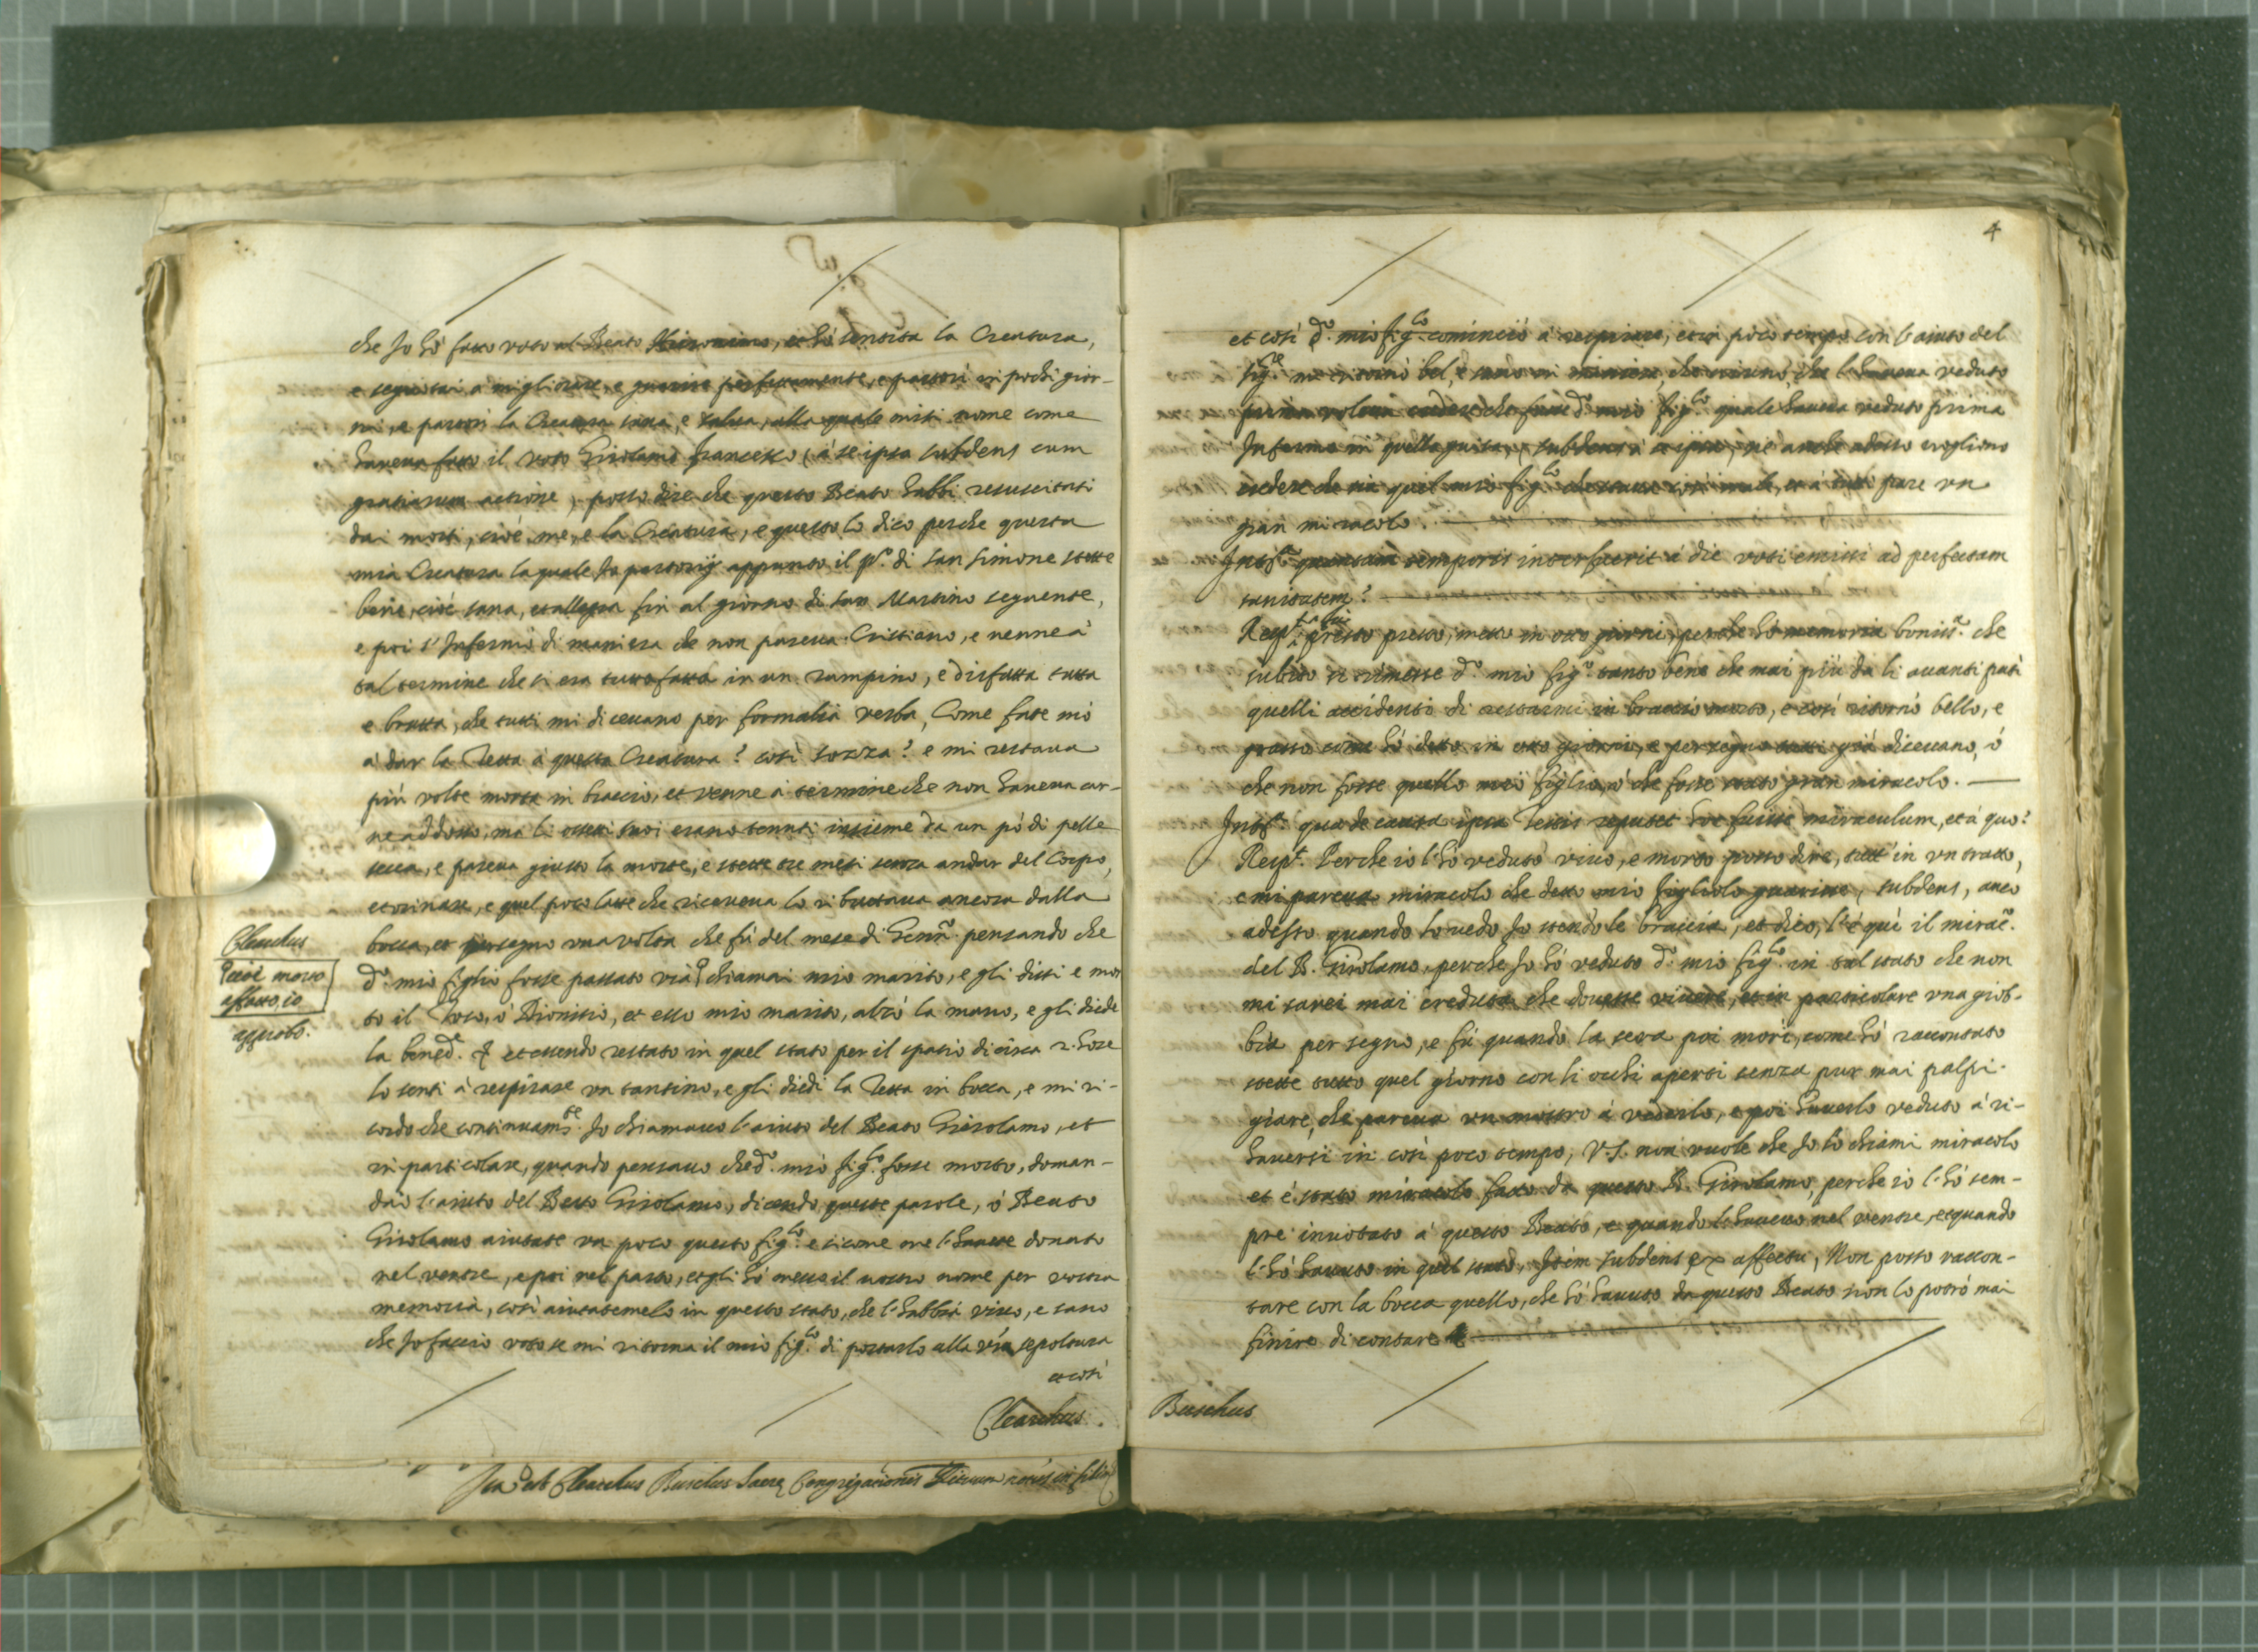 che Io hó fatto voto al Beato Hieronimo, et hó sentita la Creatura,
e seguitai à migliorare, e guarire perfettamente, e partorì in pochi gior-
ni, e partorì la Creatura sana, e salua, alla quale missi nome come
haveva fatto il voto Girolamo Francesco (à se ipsa subdens cum
gratiarum actione) posso dire che questo Beato habbi resuscitati
dai morti, cioè me, e la Creatura, e questo lo dico perche questa
mia Creatura la quale Io partorij appunto il pº. di San Simone stette
bene, cioè sana, et allegra fin al giorno di San Martino seguente,
e poi s'Infermò di maniera che non pareua Cristiano, e uenne à
tal termine che si era tutto fatto in un rampino, e disfatta tutta
e brutta, che tutti mi diceuano per formalia verba, Come fate mó
à dar la Tetta à questa Creatura? così sozza? e mi restaua
più volte morta in braccio, et venne à termine che non haueua car-
ne addosso, ma li ossetti suoi erano tenuti insieme da un pó di pelle
secca, e pareua giusto la morte, e stette tre mesi senza andar del Corpo,
et orinare, e quel poco latte che riceueua lo ributtaua ancora dalla
bocca, et per segno una volta che fù del mese di Gennº. pensando che
dº. mio figlio fosse passato vià chiamai mio marito, e gli dissi e mor
to il Toto, ò Dionisio, et esso mio marito, alzò la mano, e gli diede
la bened. et essendo restato in quel stato per il spatio di circa 2. hore
lo senti à respirare un tantino, e gli diedi la Tetta in bocca, e mi ri-
cordo che continuamte. Io chiamauo l'aiuto del Beato Girolamo, et
in particolare, quando pensauo che dº. mio figlo. fosse morto, doman-
dai l'aiuto del Beato Girolamo, dicendo queste parole, ò Beato
Girolamo aiutate un poco questo figlo. e sicome me l'hauete donato
nel ventre, e poi nel parto, et gli hó messo il uostro nome per vostra
memoria, così aiutatemelo in questo stato, che l'habbia viuo, e sano
che Io faccio voto se mi ritorna il mio figlo. di portarlo alla vra sepoltura
et così
Clearchus
cioè morto
affatto, io
approbo.
Clearchus.
Ita est Clearchus Buschus Sacræ Congregationis Rituum notus in fidem
4
et così dº. mio figlo. cominciò à respirare, et in poco tempo con l'aiuto del
Sigre. mi ritornò bel, e sano in maniera, che niuno, che l'haueua veduto
prima voleua credere che fosse dº. mio figlo. quale haueua veduto prima
Infermo in quella guisa, (subdens à se ipsa) né anche adesso uogliono
credere che sia quel mio figlo. che staua così male, et à tutti pare un
gran miracolo.
Intta. quantum temporis interfuerit à die voti emissi ad perfectam
sanitatem?
Respt. presto presto, messe in otto giorni, perche hò memoria boniss.ª che
subito si rimesse dº. mio figo. tanto bene che mai più da li auanti patì
quelli accidenti di restarmi in braccio morto, e così ritornò bello, e
grasso come hó detto in otto giorni, e per segno tutti già diceuano, ò
che non fosse quello meò figlio, ò che fosse stato gran miracolo.
Intta. qua de causa ipsa Testis reputet hoc fuisse miraculum, et à quo?
Respt. Perche io l'hó veduto viuo, e morto posso dire, tutt'in un tratto,
e mi pareua miracolo che detto mio figliolo guarisse, subdens, anco
adesso quando lo uedo Io stendo le braccia, et dico, l'è qui il miracº.
del B. Girolamo, perche Io hó veduto dº. mio figlo. in tal stato che non
mi sarei mai creduta che douesse viuere, et in particolare una giob-
bia per segno, e fù quando la sera poi morì, come hó raccontato
stette tutto quel giorno con li occhi aperti senza pur mai palpi-
giare, che pareua un mostro à vederlo, e poi hauerlo veduto à ri-
hauersi in così poco tempo, V.S. non vuole che Io lo chiami miracolo
et è stato miracolo fatto da questo B. Girolamo, perche io l'hó sem-
pre inuotato à questo Beato, e quando l'haueuo nel ventre, et quando
l'hó hauuto in quel stato, Item subdens ex affectu, Non posso raccon-
tare con la bocca quello, che hó hauuto da questo Beato non lo potrò mai
finire di contare
Buschus